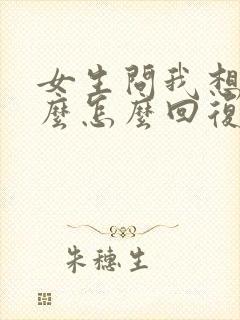 女生問我想
麼怎麼回復
朱穗生